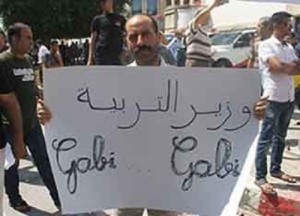 وزير التربية
Gabi ... Gabi